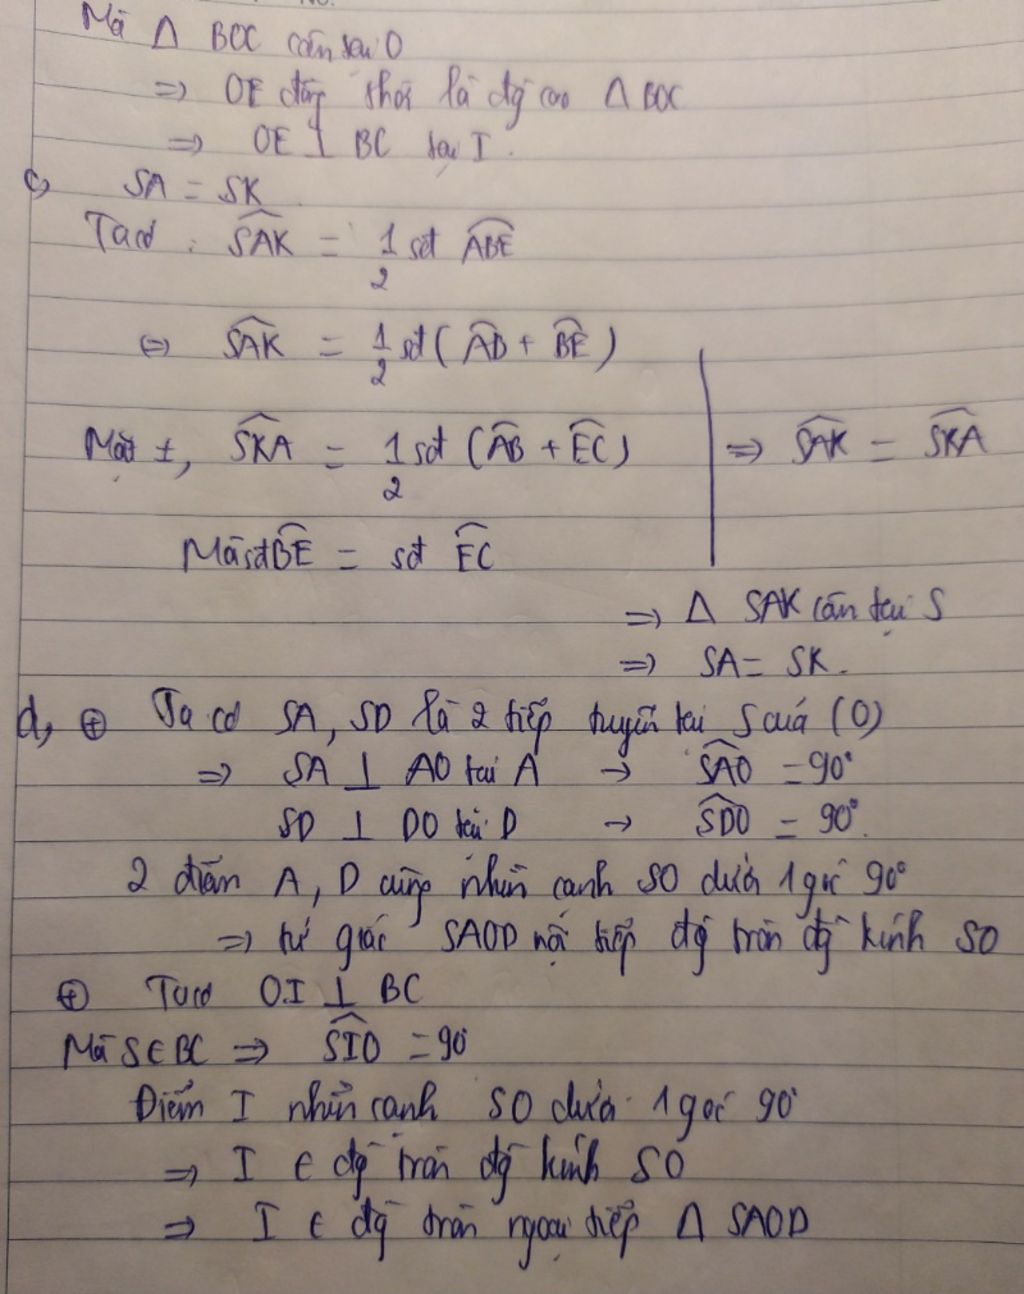 Mà Δ BOC cân tại O
=> OE đồng thời là đg cao Δ BOC
=> OE ⊥ BC tại I.
c, SA = SK
Ta có : SAK = 1/2 sđ ABE
<=> SAK = 1/2 sđ ( AB + BE )
Mặt ±, SKA = 1/2 sđ (AB + EC) => SAK = SKA
Mà sđ BE = sđ EC
=> Δ SAK cân tại S
=> SA = SK.
d, ⊕ Ta có SA, SD là 2 tiếp tuyến tại S cuả (O)
=> SA ⊥ AO tại A → SAO = 90°
SD ⊥ DO tại D → SDO = 90°.
2 điểm A, D cùng nhìn cạnh SO dưới 1 góc 90°
=> tứ giác SAOD nội tiếp đg tròn đg kính SO
⊕ Ta có O.I ⊥ BC
Mà S ∈ BC => SIO = 90°
Điểm I nhìn cạnh SO dưới 1 góc 90°
=> I ∈ đg tròn đg kính SO
=> I ∈ đg tròn ngoại tiếp Δ SAOD